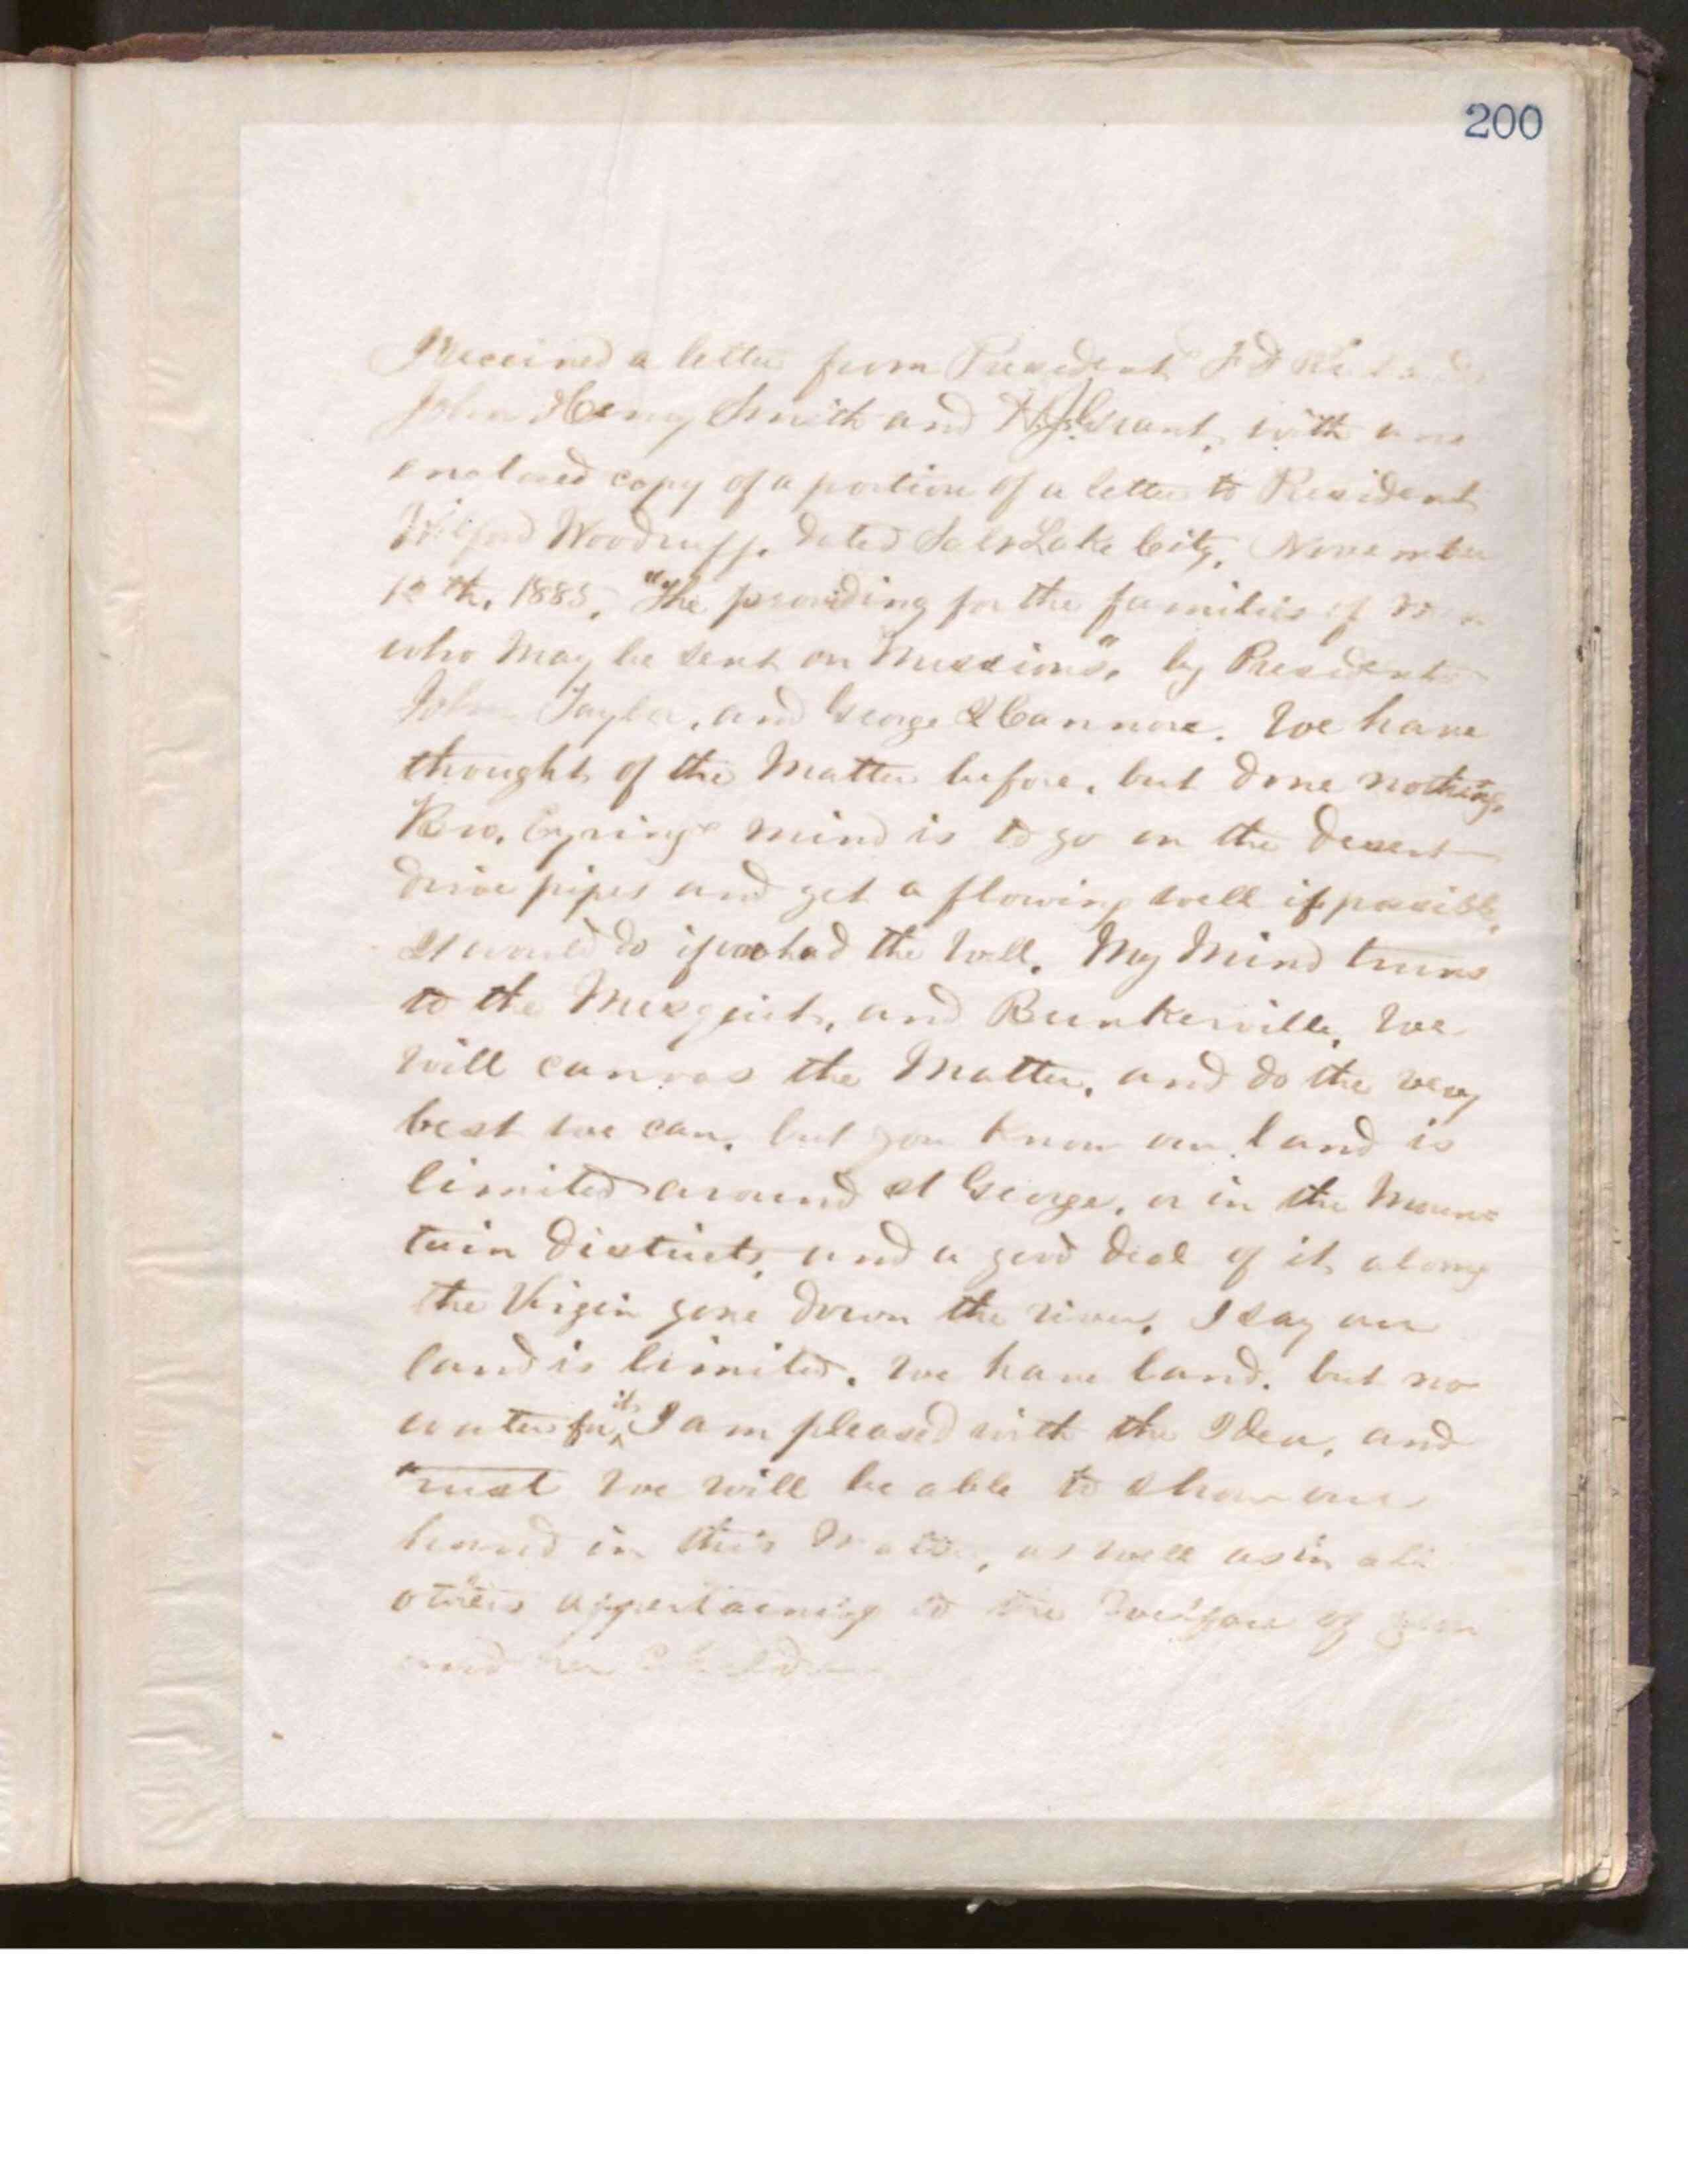 200
I received a letter from President F D Richards
John Henry Smith and H. J. Grant, with an
enclosed copy of a portion of a letter to President
Wilford Woodruff, dated Salt Lake City, November
1885, "The providing for the families of men
who may be sent on Missions", by President
John Taylor, and George Q Cannon. We have
thought of the Matter before, but done nothing,
Bro, Eyrings mind is to go on the desert
drive pipes and get a flowing well if possible,
It would do if we had the well. My Mind turns
to the Mesquit, and Bunkerville, We
will canvas the Matter, and do the very
best we can, but you know our land is
limited around St George, or in the Moun=
tain districts, and a good deal of it along
the Virgin gone down the river, I say our
land is limited, we have land, but no
water for it, I am pleased with the Idea, and
trust we will be able to show our
hand in this Matter, as well as in all
others appertaining to the Welfare of Zion
and her Children